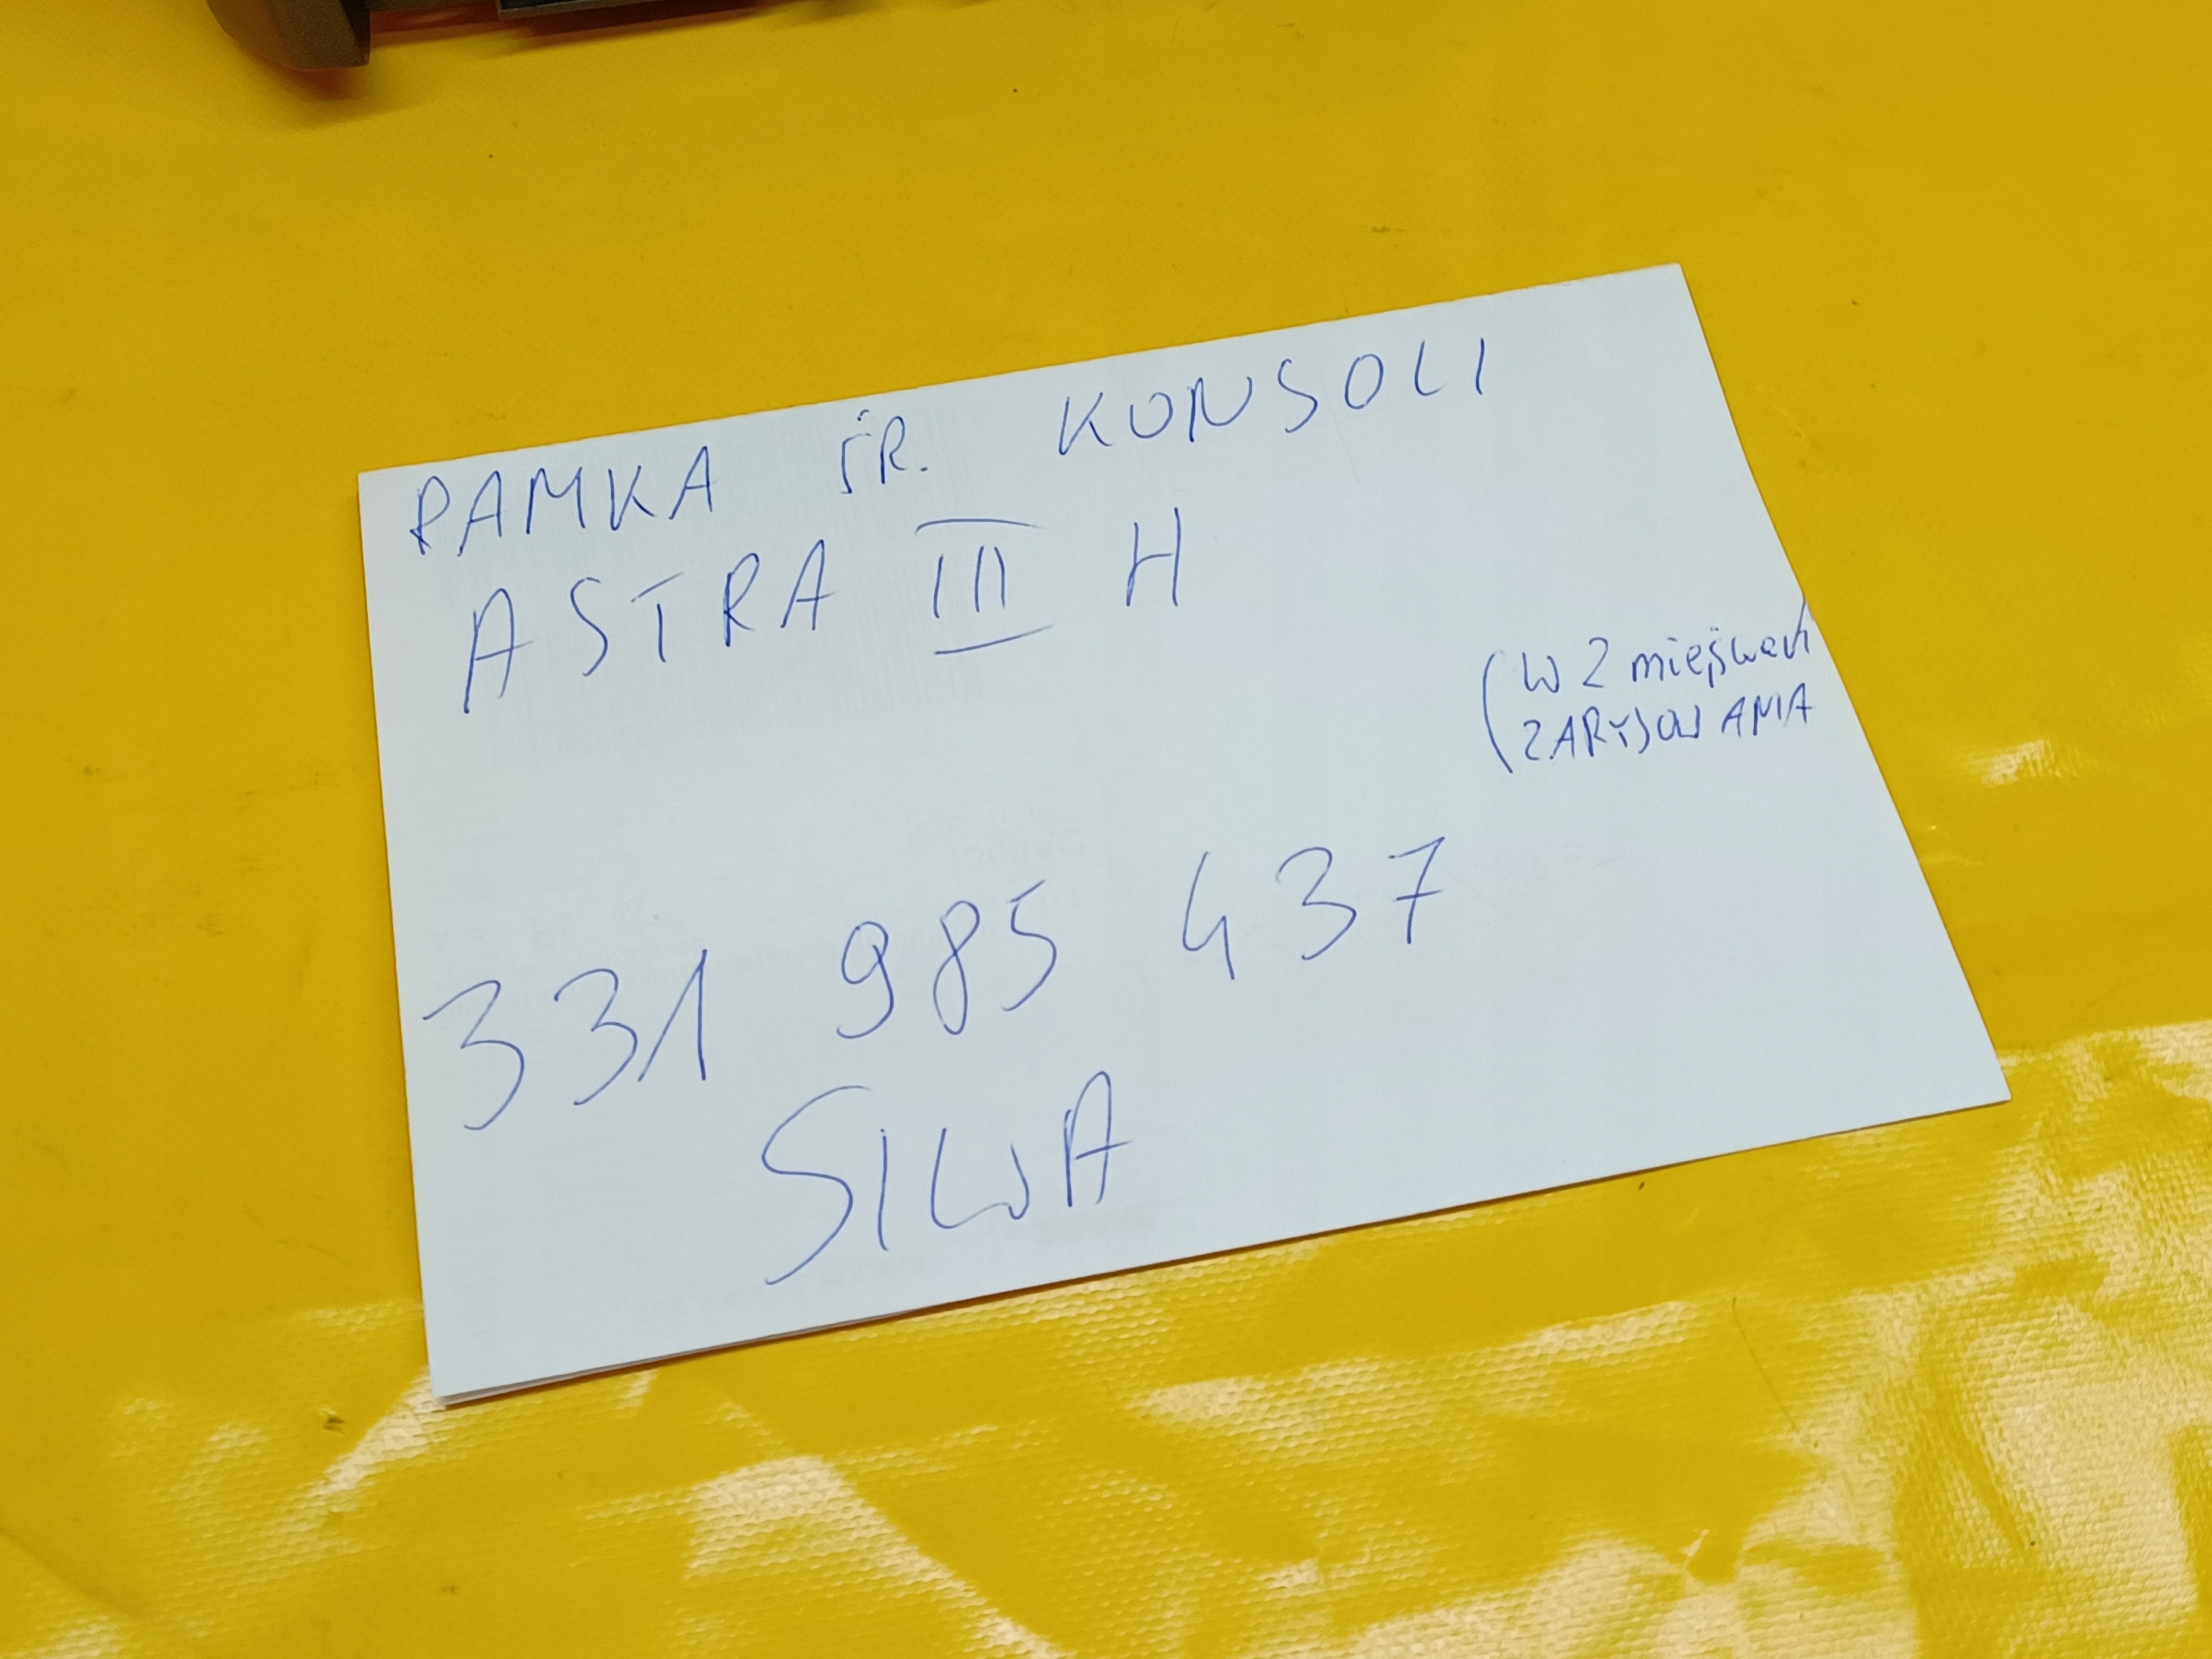 RAMKA ŚR. KONSOLI
ASTRA III H
(W 2 miejscach
ZARYSOWANIA
331 985 437
SIWA